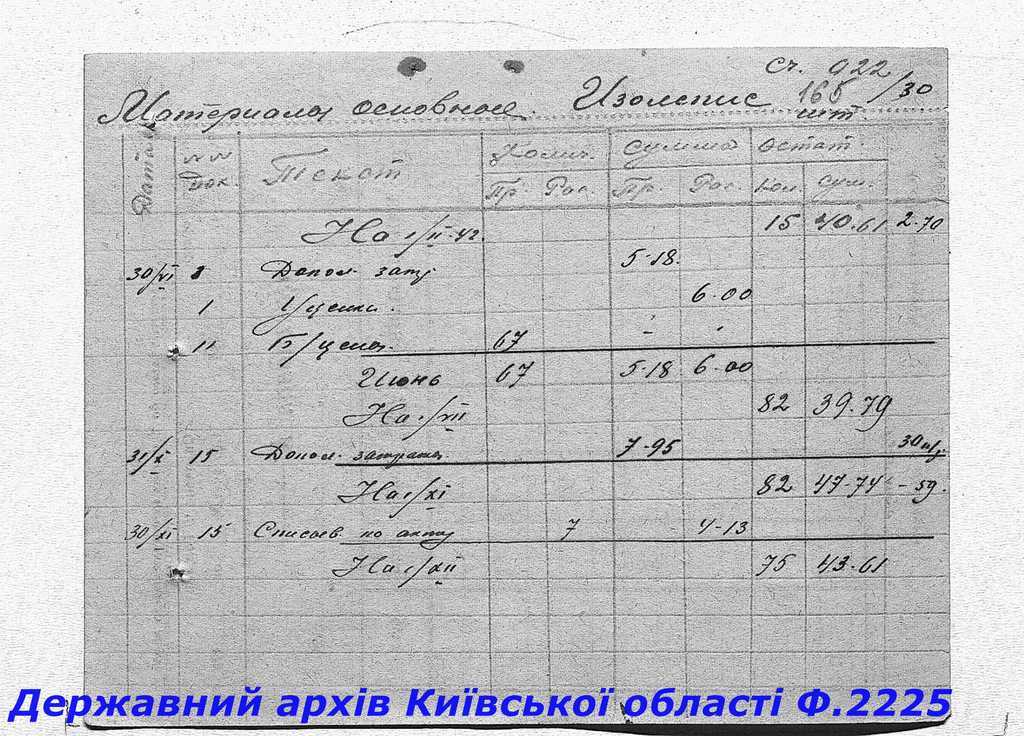 Сч. 922
Материалы основные. Изолепис 165/30
шт.
Дата № № док. Текст Колич. сумма Остат.
Пр. Рас. Пр. Рас. Кол. сум.
На 1/II-42. 15 40.61 2-70
30/VI 1 Допол. затр. 5-18.
1 Уценки. 6-00
11 Б/цена. 67 - -
Июнь 67 5-18 6-00
На 1/VII 82 39.79
31/X 15 Допол. затраты 7-95
На 1/XI 82 47-74 -59.
30/XI 15 Списов. по акту 7 4-13
На 1/XII 75 43-61
Державний архів Київської області Ф.2225